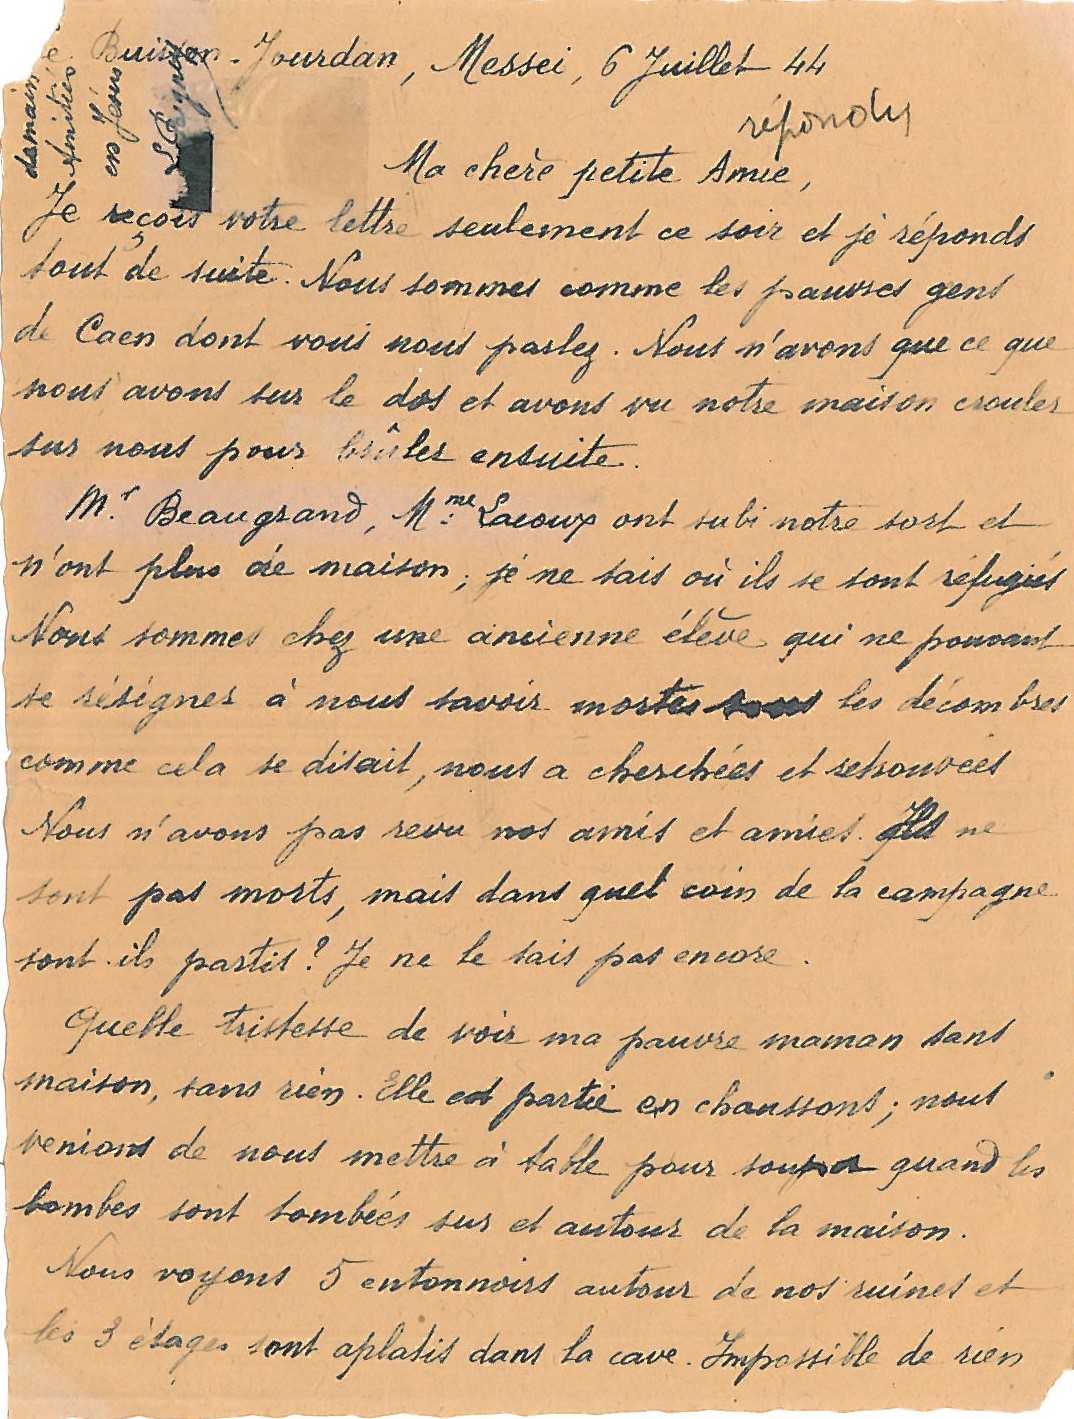 Buisson-Jourdan, Messei, 6 Juillet 44
répondu
demain
Amitiés
en Jésus
Ma chère petite Amie,
Je reçois votre lettre seulement ce soir et je réponds
tout de suite. Nous sommes comme les pauvres gens
de Caen dont vous nous parlez. Nous n'avons que ce que
nous avons sur le dos et avons vu notre maison crouler
sur nous pour brûler ensuite.
Mr. Beaugrand, Mme Lacoux ont subi notre sort et
n'ont plus de maison; je ne sais où ils se sont réfugiés
Nous sommes chez une ancienne élève qui ne pouvant
se résigner à nous savoir mortes sous les décombres
comme cela se disait, nous a cherchées et retrouvées
Nous n'avons pas revu nos amis et amies. Ils ne
sont pas morts, mais dans quel coin de la campagne
sont-ils partis? Je ne le sais pas encore.
Quelle tristesse de voir ma pauvre maman sans
maison, sans rien. Elle est partie en chaussons; nous
venions de nous mettre à table pour souper quand les
bombes sont tombées sur et autour de la maison.
Nous voyons 5 entonnoirs autour de nos ruines et
les 3 étages sont aplatis dans la cave. Impossible de rien